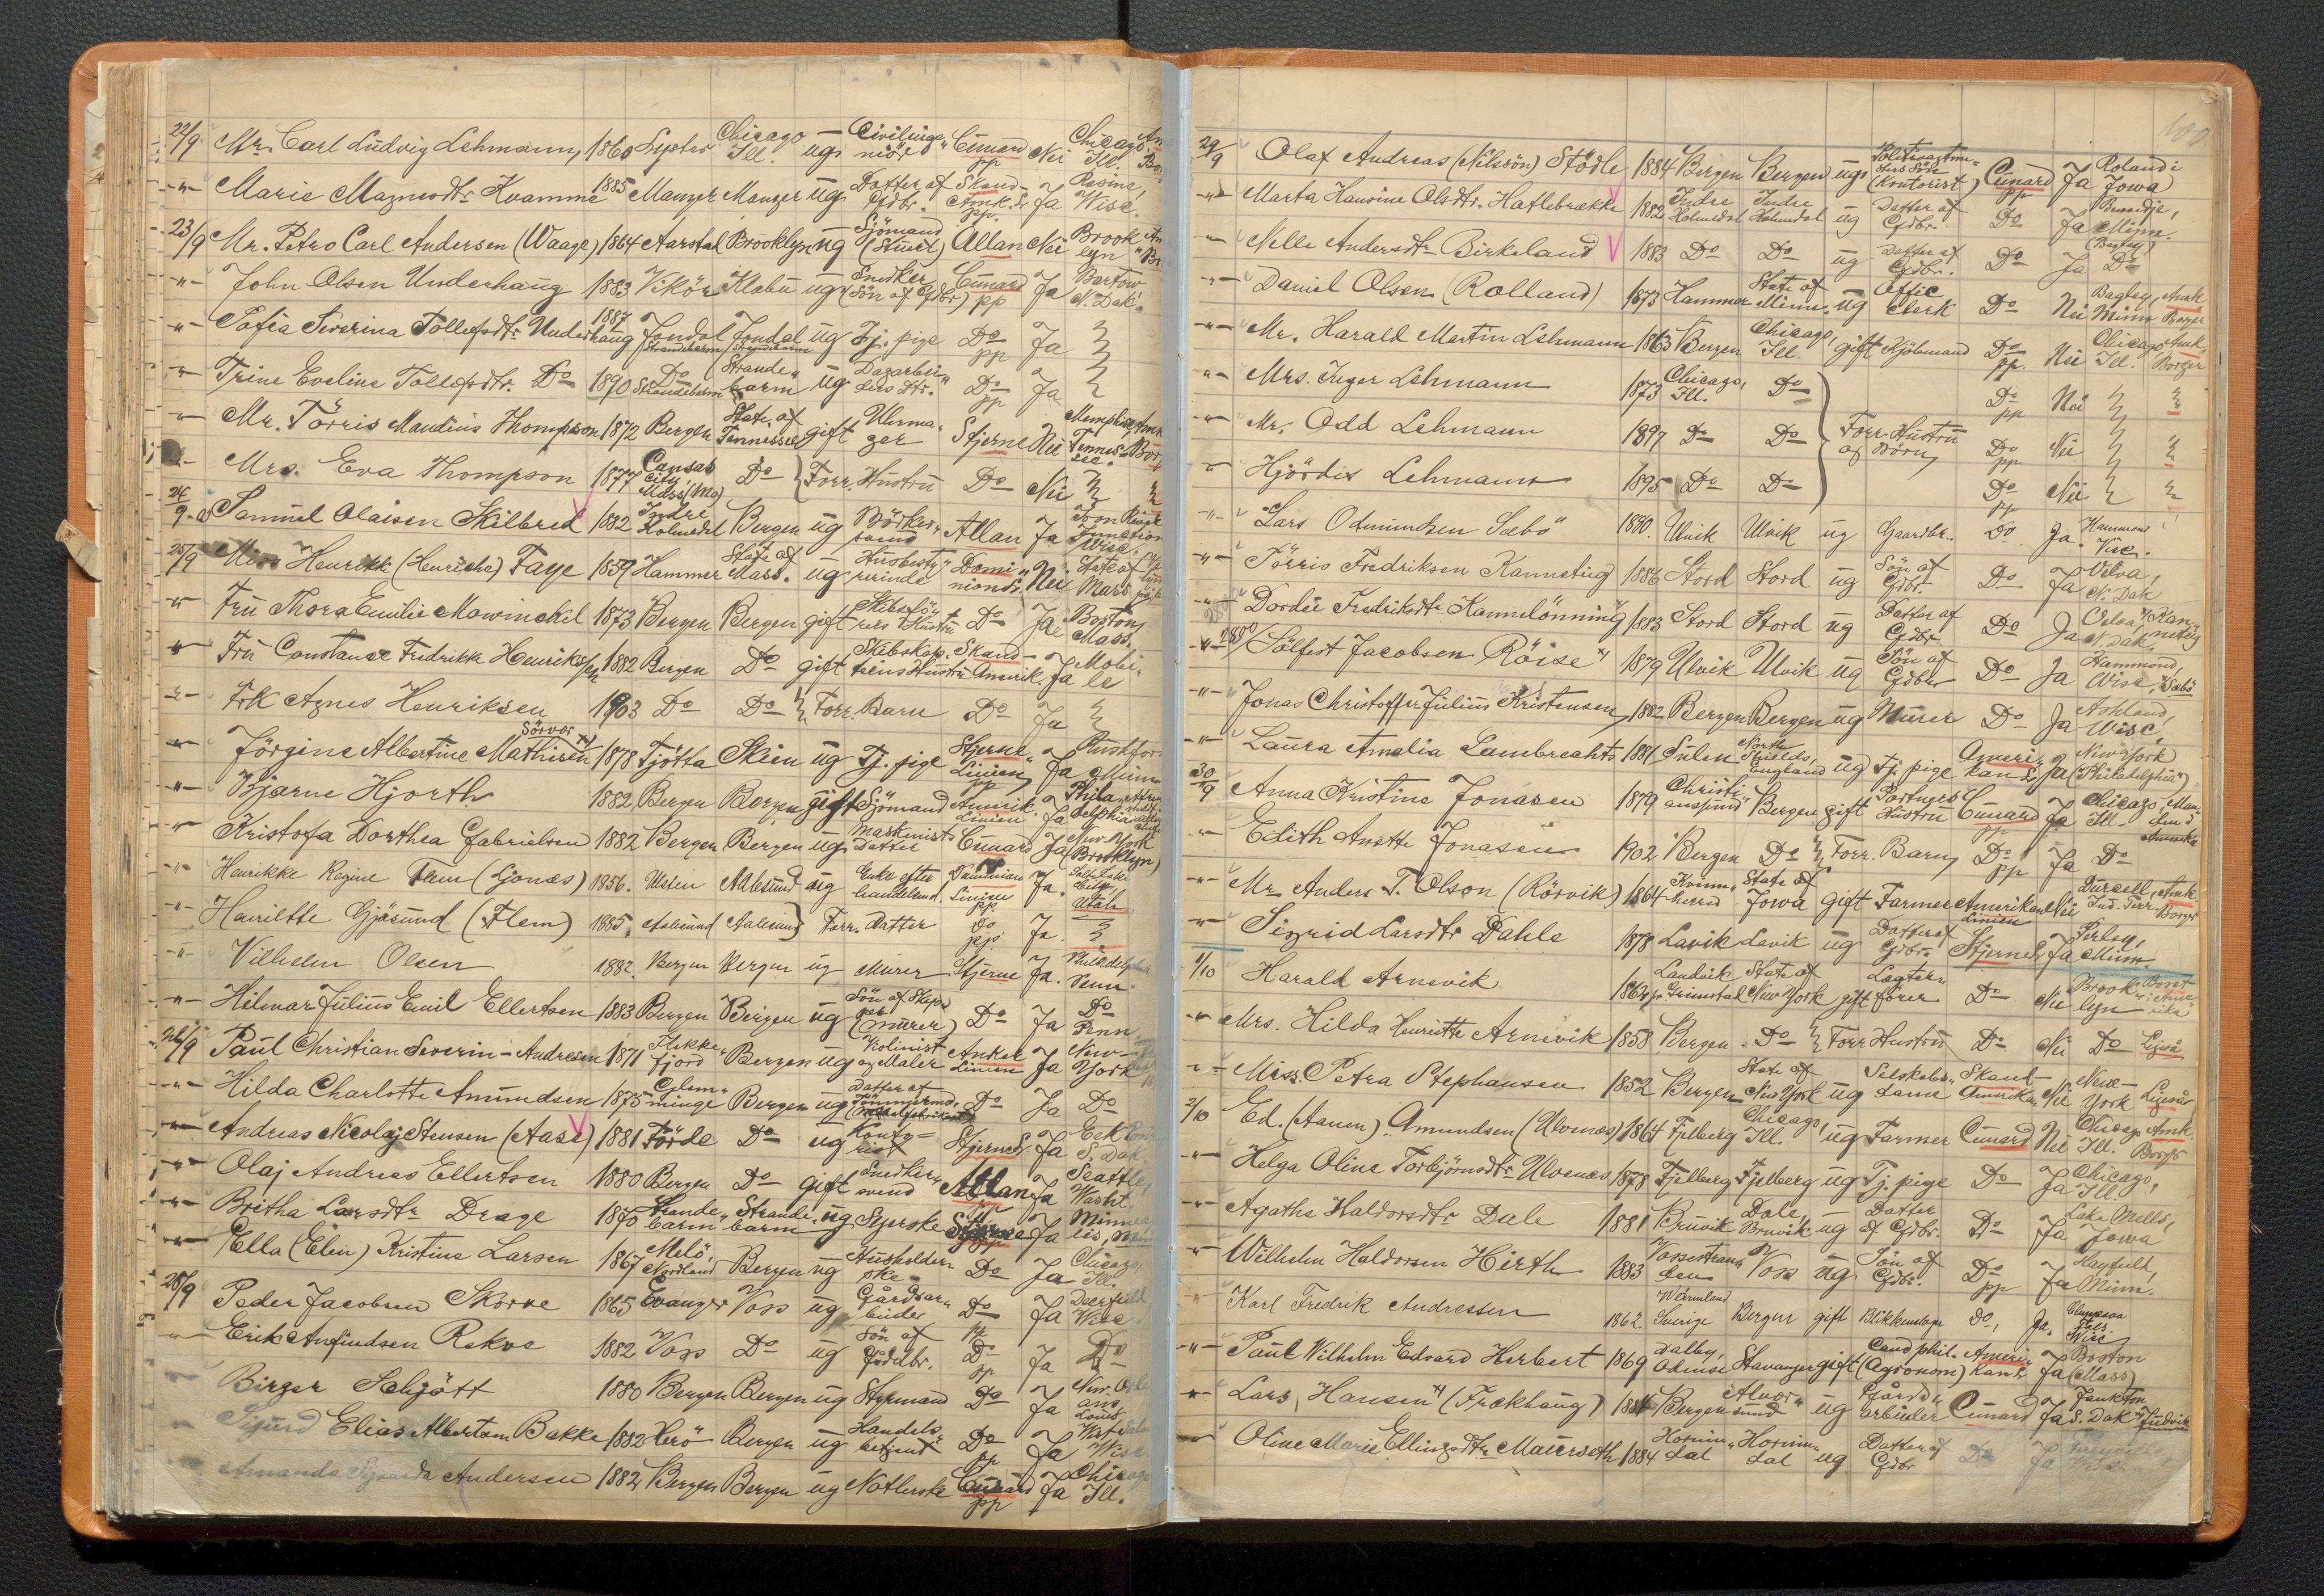 22/9 Mr. Carl Ludvig Lehmann, 1860 Lyster Chicago Ill. ug Civilingeniör Cunard pp Nei Chicago, Ill.
-"- Marie Magnesdtr. Kvamme 1885 Manger Manger ug Datter af Gdbr. Skand-Amk. L. pp. Ja Racine, Wisc.
23/9 Mr. Petro Carl Andersen (Waage) 1864 Aarstad Brooklyn ug Sjömand (Stuert) Allan Nei Brooklyn
-"- John Olsen Underhaug 1883 Vikör Klæbu ug Snedker (Sön af Gdbr) Cunard pp Ja Bartow N. Dak.
-"- Sofia Severina Tollefsdtr. Underhaug 1887 Jondal Strandebarm Jondal Strandebarm ug Tj. pige Do pp Ja
-"- Trine Eveline Tollefsdtr. Do 1890 Do Strandebarm (Strandebarm ug Dagarbeiders Dtr. Do pp Ja
-"- Mr. Törris Maudius Thompson 1872 Bergen State of Tennessee gift Urmager Stjerne Nei Memphis, Tennessee
Mrs. Eva Thompson 1877 Cansas City, (Mo) Do Forr. Hustru Do Nei
24/9 Samuel Olaisen Skilbred 1882 Indre Holmedal Bergen ug Bödkersvend Allan Ja Iron River Junction Wisc.
25/9 Miss Henrikk (Henriche) Faye 1859 Hammer State of Mass. ug Husbestyrerinde Dominion L. Nei State of Mass
-"- Fru Thora Emilie Mowinckel 1873 Bergen Bergen gift Skibsförers Hustru Do Ja Boston, Mass.
-"- Fru Constance Fredrikke Henriksen 1882 Bergen Do gift Skibskapteins Hustru Skand-Amerik. Ja Mobile
-"- Frk Agnes Henriksen 1903 Do Do Forr. Barn Do Ja
-"- Jörgine Albertine Mathisen Sörvor 1878 Tjötta Skien ug Tj. pige Stjerne Linien pp Ja Rushfor Minn
-"- Bjarne Hjorth 1882 Bergen Bergen gift Sjömand Amerik. Linien Ja Philadelphia
-"- Kristofa Dorthea Gabrielsen 1882 Bergen Bergen ug Maskinists Datter Cunard Ja New-York (Brooklyn)
-"- Henrikke Regine Flem (Gjonæs) 1856. Ulsten Aalesund ug Enke efter handelsmd. Dominion Linien pp. Ja. Salt Lake City, Utah
-"- Henriette Gjøsund (Flem) 1885. Aalesund Aalesund Forr. Datter Do pp. Ja.
-"- Vilhelm Olsen 1882. Bergen Bergen ug Murer Stjerne Ja. Philadelphia Penn.
-"- Hilmar Julius Emil Ellertsen 1883 Bergen Bergen ug Sön af Skipper (Murer) Do Ja Do Penn.
26/9 Paul Christian Severin-Andresen 1871 Flekkefjord Bergen ug Violinist og Maler Anker Linien Ja New-York
-"- Hilda Charlotte Amundsen 1875 Bergen ug Datter af Tömmermd. Do Ja Do
-"- Andreas Nicolaj Stensen (Aase) 1881 Förde Do ug Kontorist Stjerne L. Ja S. Dak.
-"- Olaj Andreas Ellertsen 1880 Bergen Do gift Snedkersvend Allan Ja Seattle, Washt.
-"- Britha Larsdtr. Drage 1870 Strandebarm Strandebarm ug Syerske Stjerne pp Ja
-"- Ella (Elin) Kristine Larsen 1867 Melö, Nordland Bergen ug Husholderske Do Ja Chicago, Ill.
28/9 Peder Jacobsen Skorve 1865 Evanger Voss ug Gårdsarbeider Do pp Ja Deerfield Wisc.
-"- Erik Anfindsen Rekve 1882 Voss Do ug Sön af Gårdbr. Do pp Ja Do
Birger Schjött 1880 Bergen Bergen ug Styrmand Do Ja New-Orleans
Sigurd Elias Albertsen Bakke 1882 Herö Bergen ug Handelsbetjent Do pp Ja Wisc
Amanda Andersen 1882 Bergen Bergen ug Notlerske Cunard pp Ja Chicago Ill.
29/9 Olaf Andreas (Nilssön) Stödle 1884 Bergen Bergen ug Sön (Kontorist) Cunard pp Ja Roland i Iowa
-"- Marta Hansine Olsdtr. Hatlebrække 1882 Indre Holmedal Indre Holmedal ug Datter af Gdbr. Do Ja Bemidje, Minn. (Bagley)
-"- Nelle Andersdtr. Birkeland 1883 Do Do ug Datter af Gdbr. Do Ja Do
-"- Daniel Olsen (Rolland) 1873 Hammer State of Minn. ug Offic Clerk Do Nei Bagley, Minn. Amk Borger
-"- Mr. Harald Martin Lehmann 1863 Bergen Chicago, Ill. gift Kjöbmand Do pp. Nei Chicago Ill. Amk Borger
-"- Mrs. Inger Lehmann 1873 Chicago, Ill. Do Do pp Nei
-"- Mr. Odd Lehmann 1897 Do Do Forr. Hustru og Börn, Do pp Nei
-"- Hjördis Lehmann 1895 Do Do Do pp Nei
-"- Lars Odmundsen Sæbö 1880. Ulvik Ulvik ug Gaardbr. Do Ja. Hammond Visc.
-"- Törris Fredriksen Kannelönning 1886 Stord Stord ug Sön af Gdbr. Do Ja Velva, N. Dak
-"- Dordei Fredriksdtr. Kannelönning 1883 Stord Stord ug Datter af Gdbr. Do Ja Velva N. Dak.
-"- 2800 Sölfest Jacobsen Röise 1879 Ulvik Ulvik ug Sön af Gdbr. Do Ja Hammond, Wisc. Sæbö
-"- Jonas Christoffer Julius Kristensen, 1882 Bergen Bergen ug Murer Do Ja Ashland, Wisc.
-"- Laura Amalia Lambrechts 1881 Sulen North Shields, England ug Tj. pige Amerikansk Ja New York (Philadelphia)
30/9 Anna Kristine Jonasen 1879 Christianssund Bergen gift Portners Hustru Cunard pp Ja Chicago, Ill. Mand i Amerika
-"- Edith Anette Jonasen 1902 Bergen Do Forr. Barn, Do pp Ja Do
-"- Mr. Anders T. Olson (Rörvik) 1864 Kvinnherred State of Iowa gift Farmer Amerikanske Linien Nei Durcell, Ind. Terr. Amk. Borger
-"- Sigrid Larsdtr. Dahle 1878 Lavik Lavik ug Datter af Gdbr. Stjerne L. Ja Perley, Minn.
1/10 Harald Arnevik 1864 Landvik pr Grimstad State of New York gift Lagterförer Do Nei Brooklyn Bosat i Amerika
-"- Mrs. Hilda Henriette Arnevik 1858 Bergen Do Forr. Hustru Do Nei Do Ligeså
-"- Miss. Petra Stephansen 1852 Bergen State of New York ug Selskabsdame Skand-Amerika Nei New-York Ligeså
2/10 Ed. (Aanen) Amundsen (Ulvenæs) 1864 Fjelberg Chicago, Ill. ug Farmer Cunard Nei Chicago Ill. Amk. Borgr
-"- Helga Oline Torbjörnsdtr. Ulvenæs 1878 Fjelberg Fjelberg ug Tj. pige Do Ja Chicago, Ill.
-"- Agatha Haldorsdtr. Dale 1881 Bruvik Dale, Bruvik ug Datter af Gdbr. Do Ja Lake Mills, Iowa
-"- Wilhelm Haldorsen Hirth 1883 Vossestranden Voss ug Sön af Gdbr. Do pp Ja Hayfield, Minn.
Karl Fredrik Andressen 1862 Wärmland Sverige Bergen gift Blikkenslager Do, Ja. Wisc
-"- Paul Vilhelm Edvard Herbert 1869 Dalby, Odense Stavanger gift Cand phil. (Agronom) Amerikansk Ja Boston (Mass)
-"- Lars, Hansen (Frækhaug) 1884 Bergen Alversund ug Gårdsarbeider Cunard Ja S. Dak
Oline Marie Ellingsdtr. Maurseth 1884 Hornindal Hornindal ug Datter af Gdbr Do Ja